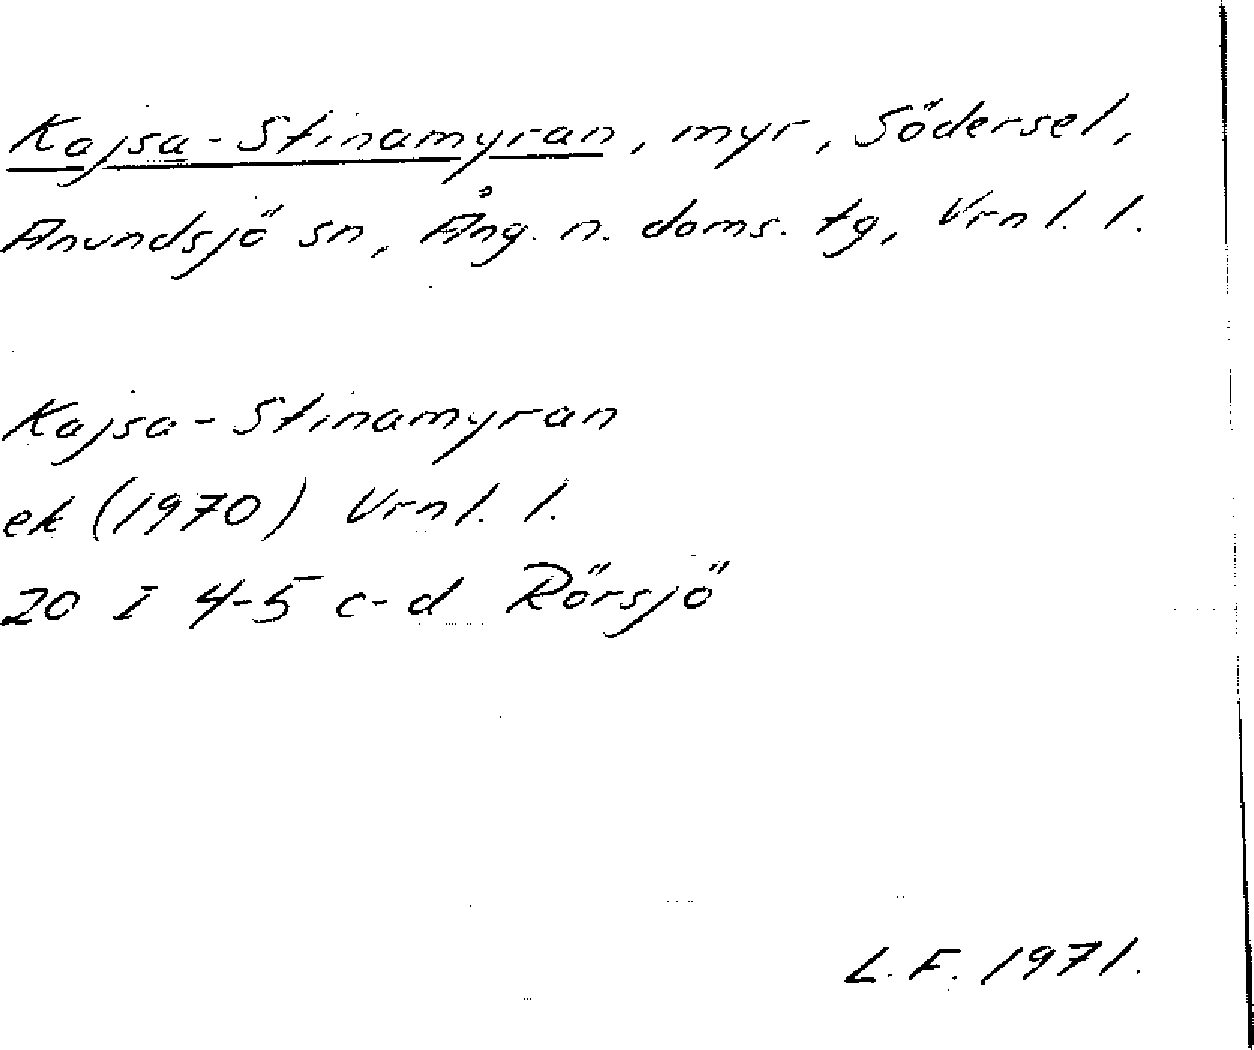 Kajsa-Stinamyran, myr, Södersel,
Anundsjö sn, Ång. n. doms. tg, Vrnl. l.
Kajsa-Stinamyran
ek (1970) Vrnl. l.
20 I 4-5 c-d Rörsjö
L.F. 1971.